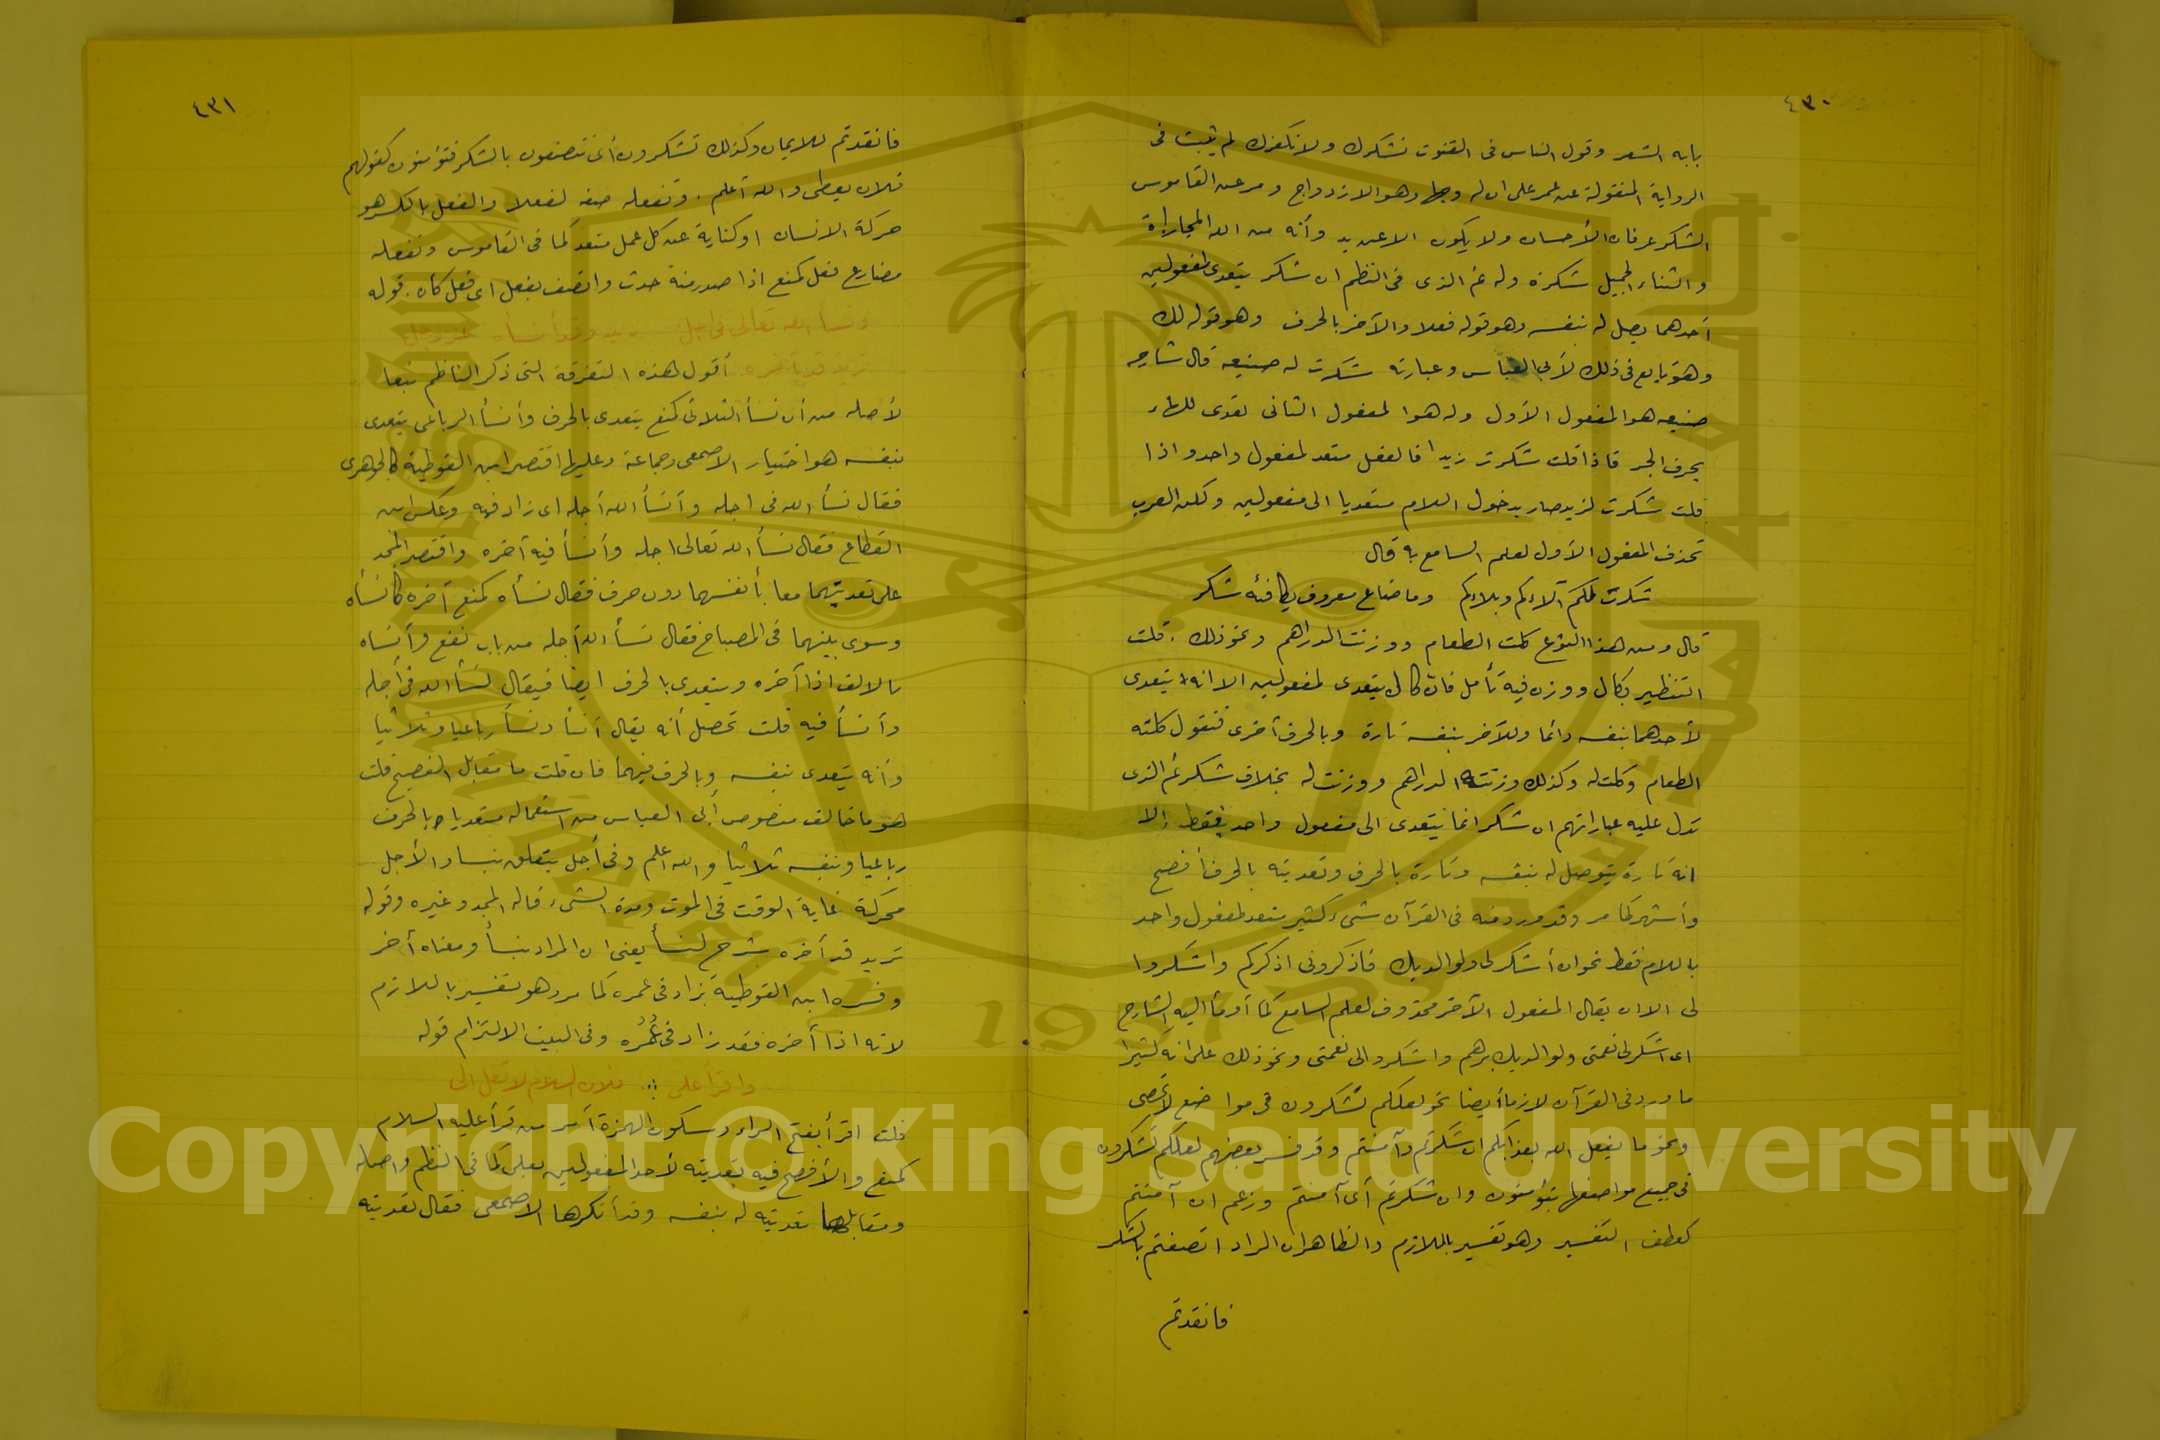 ٤٣٠
بابه الشعر وقول الناس فى القنوت نشكرك ولا نكفرك لم يثبت فى
الرواية المنقولة عن عمر على ان له وجها وهو الازدواج ومر عن القاموس
الشكر عرفان الأحسان ولا يكون الا عن يد وأنه من الله المجازاة
والثناء الجميل شكره وله ثم الذى فى النظم ان شكر يتعدى لمفعولين
أحدهما يصل له بنفسه وهو قوله فعلا والآخر بالحرف وهو قوله لك
وهو تابع فى ذلك لأبى العباس وعبارته شكرت له صنيعه قال شارحه
صنيعه هو المفعول الأول وله هو المفعول الثانى تعدى للهاء
بحرف الجر فاذا قلت شكرت زيدا فالفعل متعد لمفعول واحد واذا
قلت شكرت لزيد صار بدخول اللام متعديا الى مفعولين ولكن العرب
تحذف المفعول الأول لعلم السامع به قال
شكرت لكم آلاءكم وبلاءكم وما ضاع معروف يكافئه شكر
قال ومن هذا النوع كلت الطعام ووزنت الدراهم ونحو ذلك . قلت
التنظير بكال ووزن فيه تأمل فان كال يتعدى لمفعولين الا انه يتعدى
لأحدهما بنفسه دائما وللآخر بنفسه تارة وبالحرف أخرى فتقول كلته
الطعام وكلت له وكذلك وزنته الدراهم ووزنت له بخلاف شكر ثم الذى
تدل عليه عباراتهم ان شكر انما يتعدى الى مفعول واحد فقط إلا
انه تارة يتوصل له بنفسه وتارة بالحرف وتعديته بالحرف أفصح
وأشهر كما مر وقد ورد منه فى القرآن شىء كثير متعد لمفعول واحد
باللام فقط نحو ان أشكر لى ولوالديك فاذكرونى اذكركم واشكروا
لى الا ان يقال المفعول الآخر محذوف لعلم السامع كما أومأ اليه الشارح
اى اشكر لى نعمتى ولوالديك برهم واشكروا لى نعمتى ونحو ذلك على انه كثيرا
ما ورد فى القرآن لازما أيضا نحو لعلكم تشكرون فى مواضع لا تحصى
ونحو ما يفعل الله بعذابكم ان شكرتم وآمنتم وقد فسر بعضهم لعلكم تشكرون
فى جميع مواضعها بتؤمنون وان شكرتم أى آمنتم وزعم ان آمنتم
كعطف التفسير وهو تفسير باللازم والظاهر ان المراد اتصفتم بالشكر
فانقدتم
٤٣١
فانقدتم للايمان وكذلك تشكرون أى تتصفون بالشكر فتؤمنون كقولهم
فلان يعطى والله أعلم . وتفعله صفة لفعلا والفعل بالكسر هو
حركة الانسان او كناية عن كل عمل متعد كما فى القاموس وتفعله
مضارع فعل كمنع اذا صدر منه حدث واتصف بفعل اى فعل كان . قوله
ونسأ الله تعالى فى أجل
أقول هذه التفرقة التى ذكر الناظم تبعا
لأصله من أن نسأ الثلاثى كمنع يتعدى بالحرف وأنسأ الرباعى يتعدى
بنفسه هو اختيار الاصمعى وجماعة وعليها اقتصر ابن القوطية كالجوهرى
فقال نسأ الله فى اجله وأنسأ الله أجله اى زاد فيه وعكس ابن
القطاع فقال نسأ الله تعالى اجله وأنسأ فيه أخره واقتصر المجد
على تعديتهما معا بأنفسهما دون حرف فقال نسأه كمنع أخره كأنسأه
وسوى بينهما فى المصباح فقال نسأ الله أجله من باب نفع وأنسأه
بالالف اذا أخره ويتعدى بالحرف ايضا فيقال نسأ الله فى أجله
وأنسأ فيه قلت تحصل أنه يقال أنسأ ونسأ رباعيا وثلاثيا
وأنه يتعدى بنفسه وبالحرف فيهما فان قلت ما مقابل الفصيح قلت
هو ما خالف منصوص أبى العباس من استعماله متعديا بالحرف
رباعيا وبنفسه ثلاثيا والله اعلم وفى أجل يتعلق بنسأ والأجل
محركة غاية الوقت فى الموت ومدة الشىء قاله المجد وغيره وقوله
تريد قد أخره شرح لنسأ يعنى ان المراد بنسأ ومعناه أخر
وفسره ابن القوطية بزاد فى عمره كما مر وهو تفسير باللازم
لانه اذا أخره فقد زاد فى عُمُرُه وفى البيت الالتزام قوله
واقرأ على فلان السلام لا تقل الى
قلت اقرأ بفتح الراء وسكون الهمزة أمر من قرأ عليه السلام
كمنع والأفصح فيه تعديته لأحد المفعولين بعلى كما فى النظم واصله
ومقابلها تعديته له بنفسه وقد أنكرها الاصمعى فقال تعديته
Copyright © King Saud University
1957